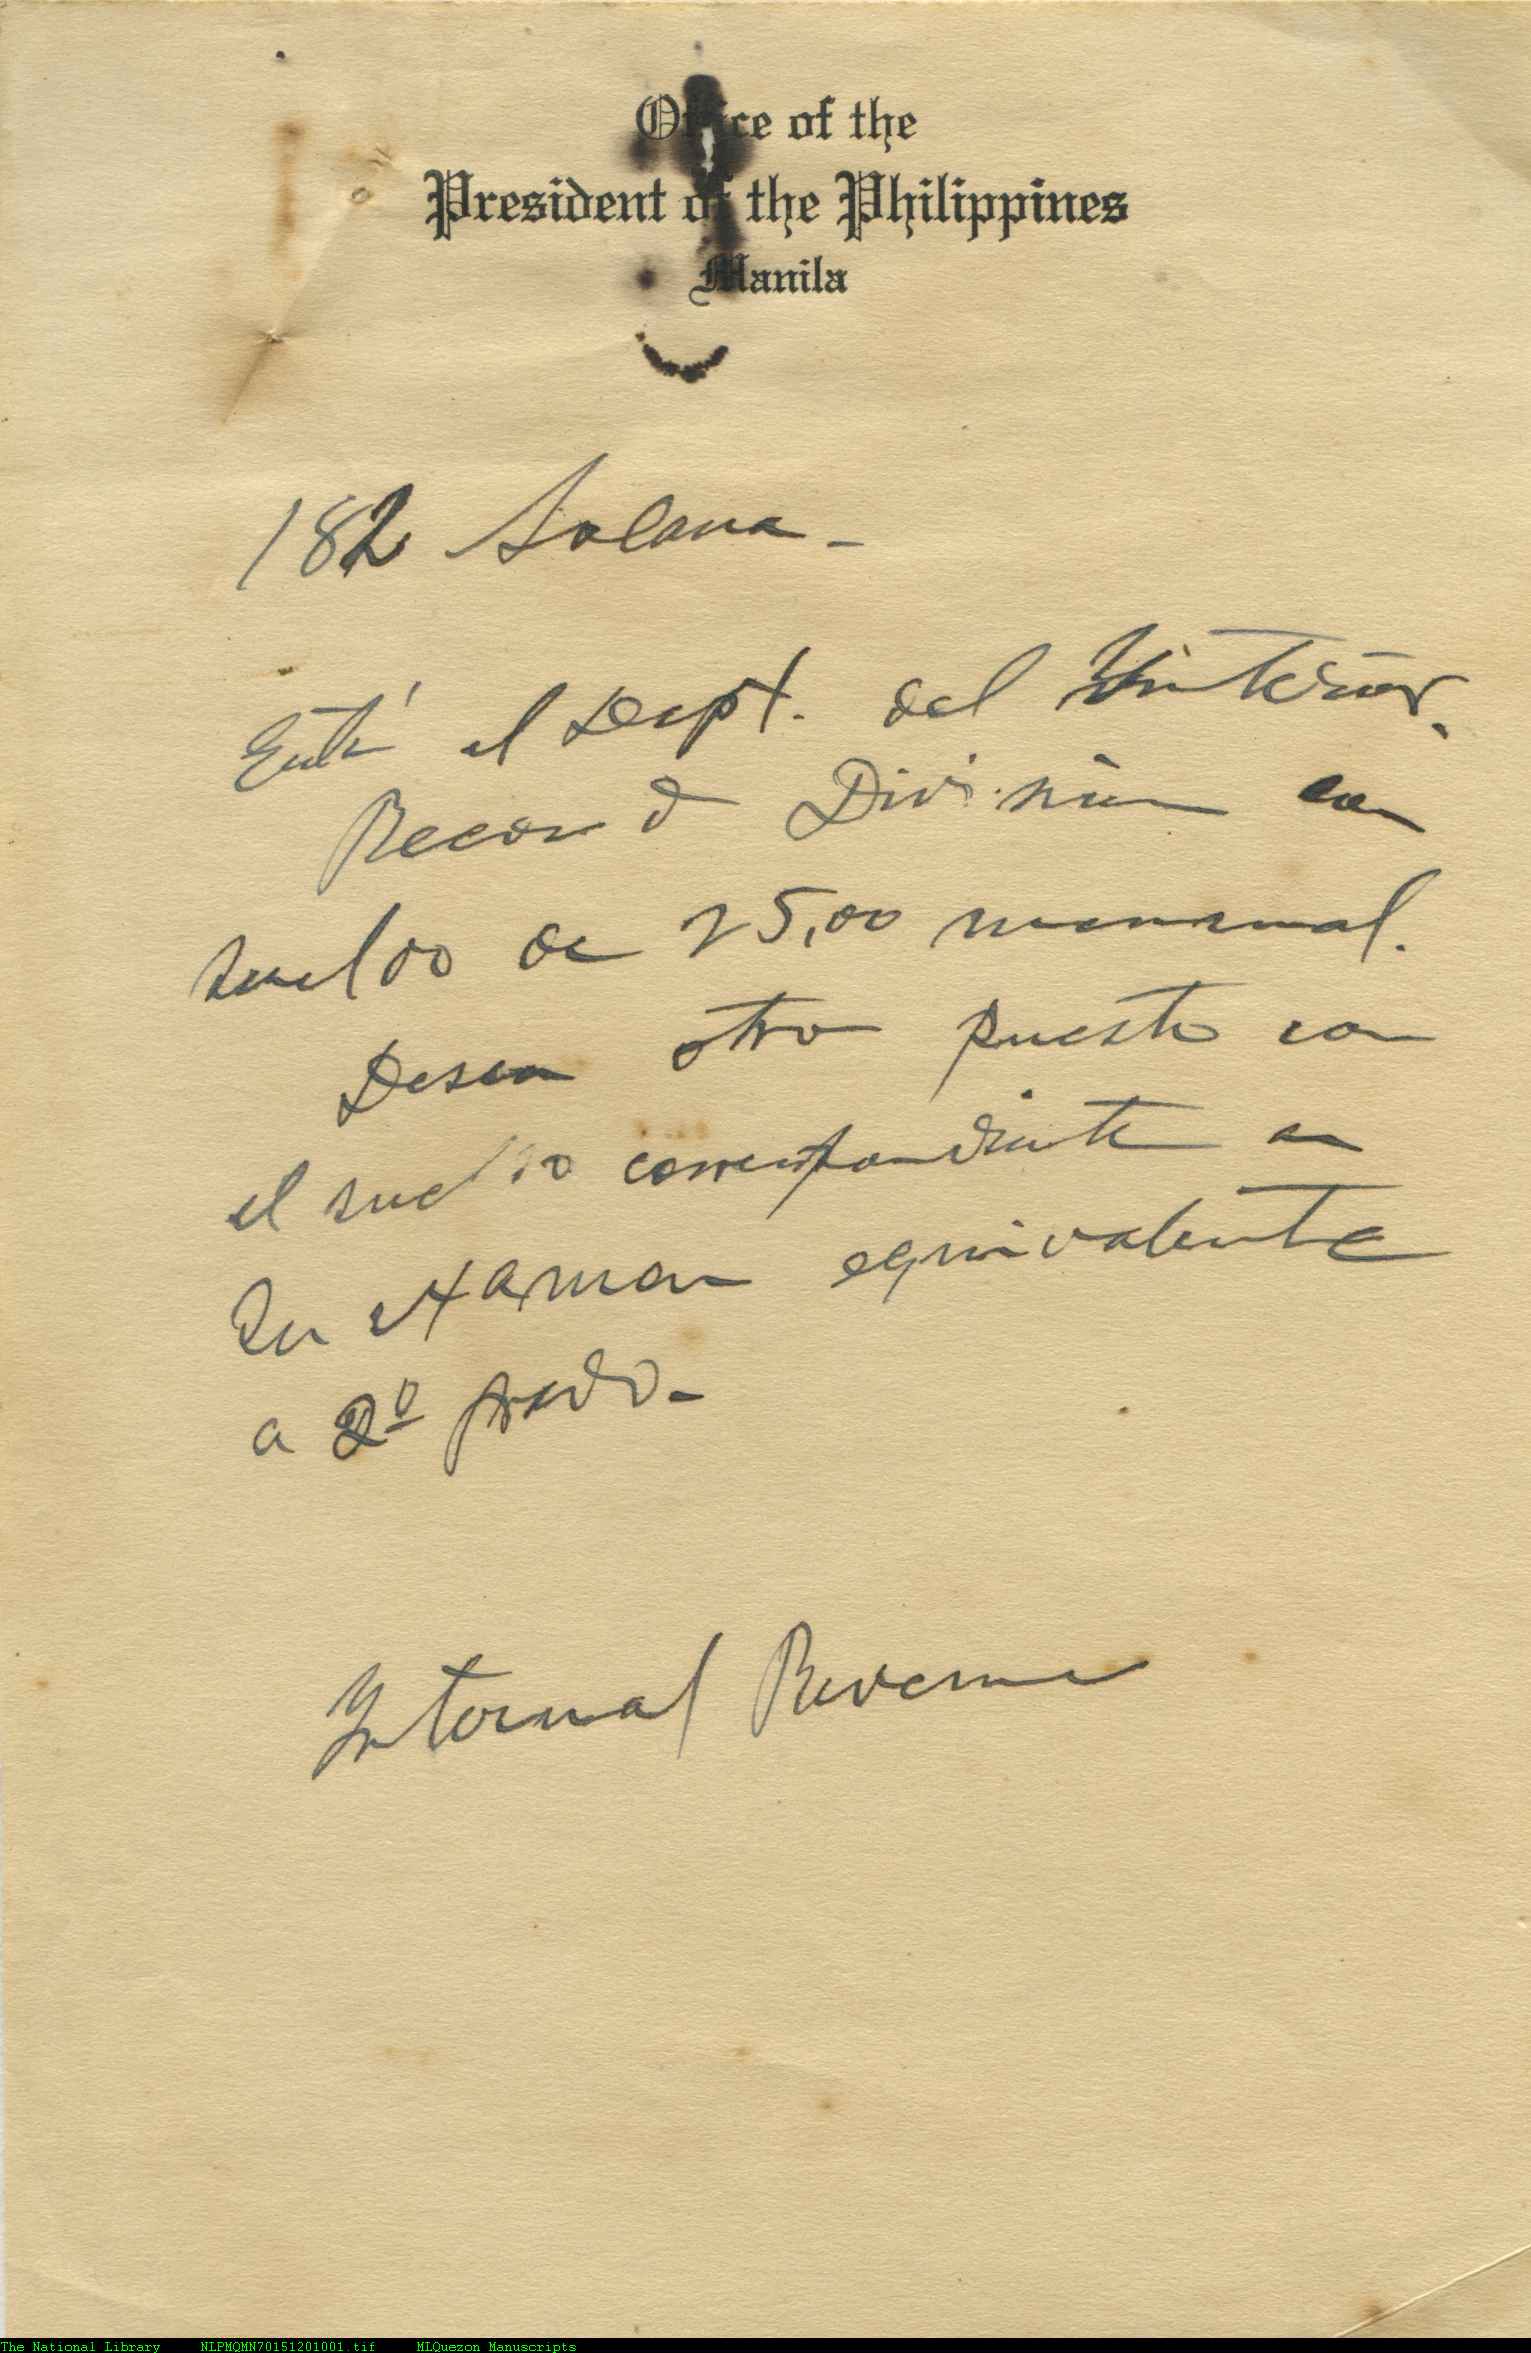 Office of the
President of the Philippines
Manila
182 Solana -
Está el Dept. del Interior.
Record Division con
sueldo de 25,00 mensual.
Desea otro puesto con
el sueldo correspondiente a
su examen equivalente
a 2º grado. -
Internal Revenue
The National Library NLPMQMN70151201001.tif MLQuezon Manuscripts